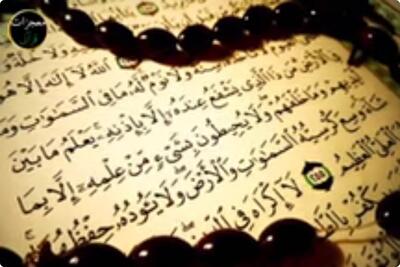 معجزات
وَلَا خُلَّةٌ
ٱللَّهُ لَآ إِلَٰهَ إِلَّا هُوَ
وَلَا نَوْمٌ لَّهُۥ مَا فِى ٱلسَّمَٰوَٰتِ وَمَا
فِى ٱلْأَرْضِ مَن ذَا ٱلَّذِى يَشْفَعُ عِندَهُۥٓ إِلَّا بِإِذْنِهِۦ يَعْلَمُ مَا بَيْنَ
أَيْدِيهِمْ وَمَا خَلْفَهُمْ وَلَا يُحِيطُونَ بِشَىْءٍ مِّنْ عِلْمِهِۦٓ إِلَّا بِمَا
شَآءَ وَسِعَ كُرْسِيُّهُ ٱلسَّمَٰوَٰتِ وَٱلْأَرْضَ وَلَا يَـُٔودُهُۥ حِفْظُهُمَا
ٱلْعَلِىُّ ٱلْعَظِيمُ ٢٥٥ لَآ إِكْرَاهَ فِى ٱلدِّينِ
يَكْفُرْ